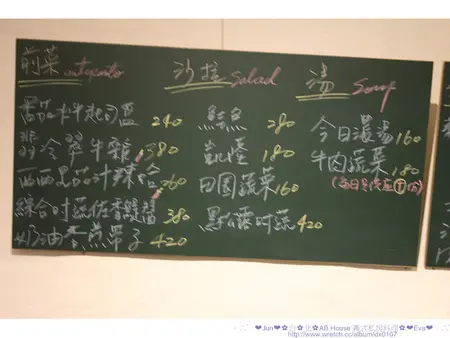 前菜 antipasto
蕃茄水牛起司盅 240
翡冷翠牛雜 380
西西里茄汁辣蛤 260
綜合時蔬佐香醍醬 380
奶油香煎帶子 420
沙拉 Salad
鮪魚 280
凱隆 180
田園蔬菜 160
時蔬 420
湯 Soup
今日濃湯 160
牛肉蔬菜 180
❤Jun❤✿台✿北✿AB House 義式私房料理✿❤Eva❤
http://www.wretch.cc/album/dx0107